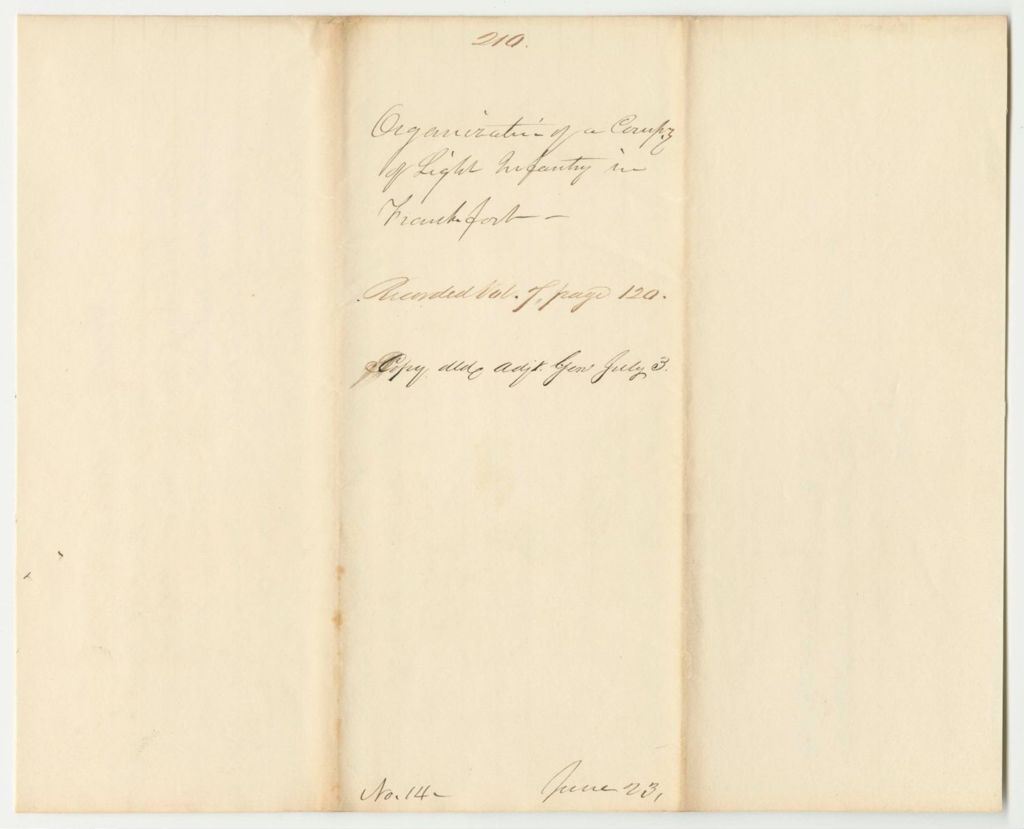 210.
Organization of a Compy
of Light Infantry in
Frankfort —
Recorded Vol. 7, page 120.
Copy dld Adjt. Gen July 3.
No. 14 -
June 23,